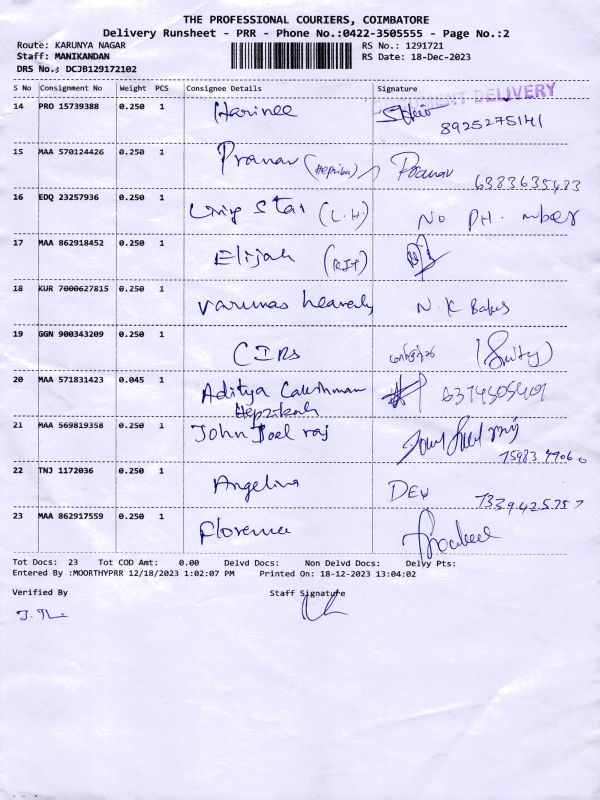 THE PROFESSIONAL COURIERS, COIMBATORE
Delivery Runsheet - PRR - Phone No.:0422-3505555 - Page No.:2
Route: KARUNYA NAGAR RS No.: 1291721
Staff: MANIKANDAN RS Date: 18-Dec-2023
DRS No.: DCJB129172102
S No Consignment No Weight PCS Consignee Details Signature
DELIVERY
14 PRO 15739388 0.250 1 Harinee
8925275141
15 MAA 570124426 0.250 1 Pranav Pranav
6383635483
16 EDQ 23257936 0.250 1 Star (L.H) No PH.
17 MAA 862918452 0.250 1 Elijah
18 KUR 7000627815 0.250 1 varunas heavenly N.K Bakes
19 GGN 900343209 0.250 1 CIRs
20 MAA 571831423 0.045 1 Aditya 6374505409
Hepzibah
21 MAA 569819358 0.250 1 John Joel raj
22 TNJ 1172036 0.250 1 Angelina DEV 7339425757
23 MAA 862917559 0.250 1 Florence
Tot Docs: 23 Tot COD Amt: 0.00 Delvd Docs: Non Delvd Docs: Delvy Pts:
Entered By :MOORTHYPRR 12/18/2023 1:02:07 PM Printed On: 18-12-2023 13:04:02
Verified By Staff Signature